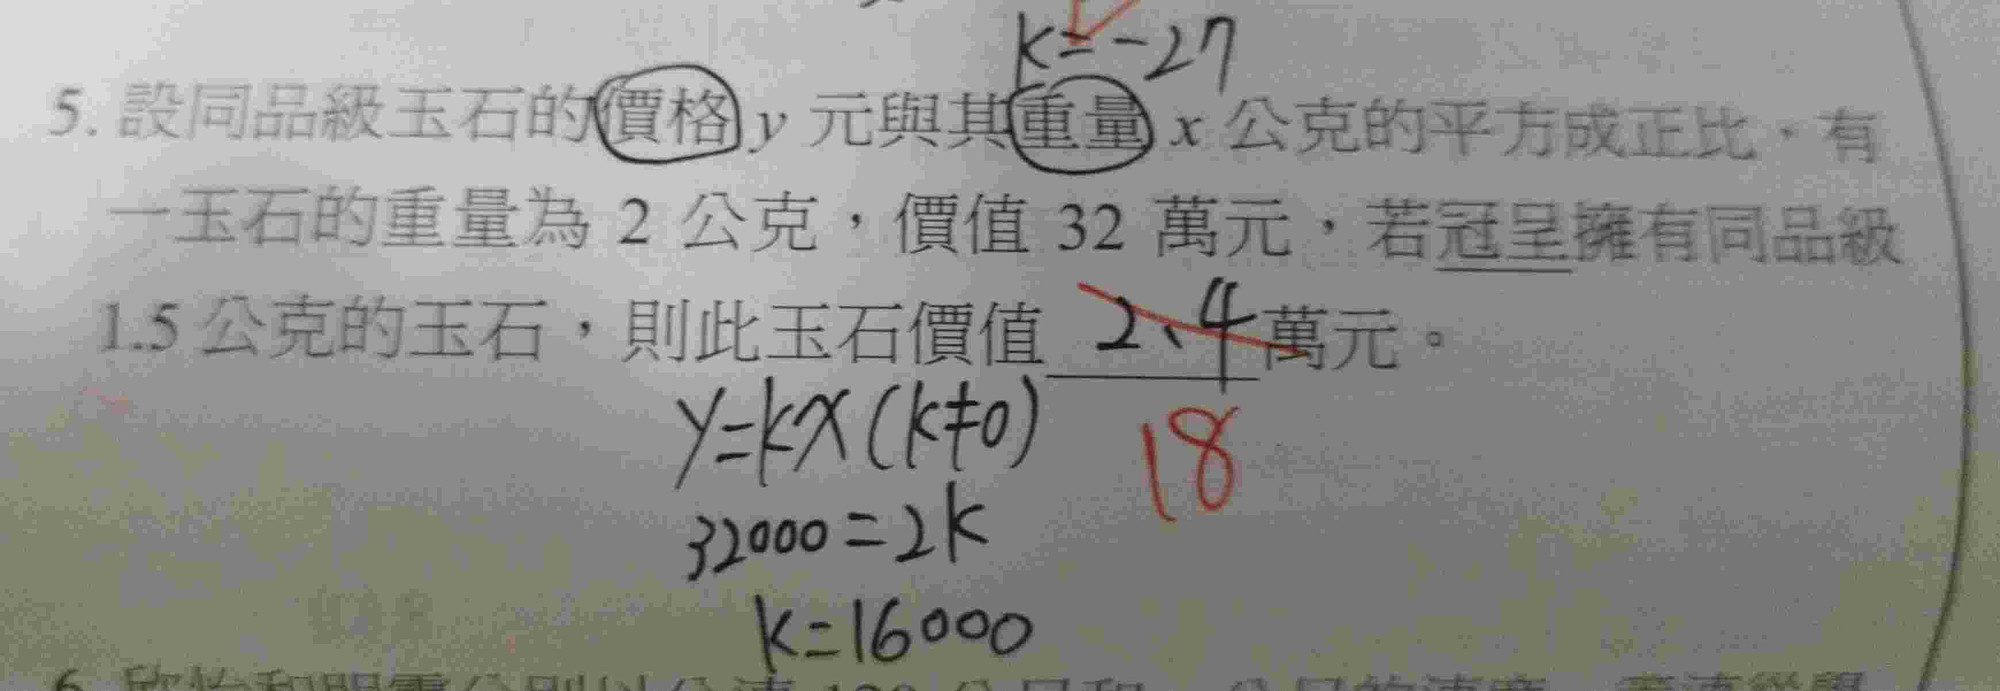 k=-27
5. 設同品級玉石的價格 y 元與其重量 x 公克的平方成正比,有
一玉石的重量為 2 公克,價值 32 萬元,若冠呈擁有同品級
1.5 公克的玉石,則此玉石價值 2.4 萬元。
18
y=kx(k≠0)
32000=2k
k=16000